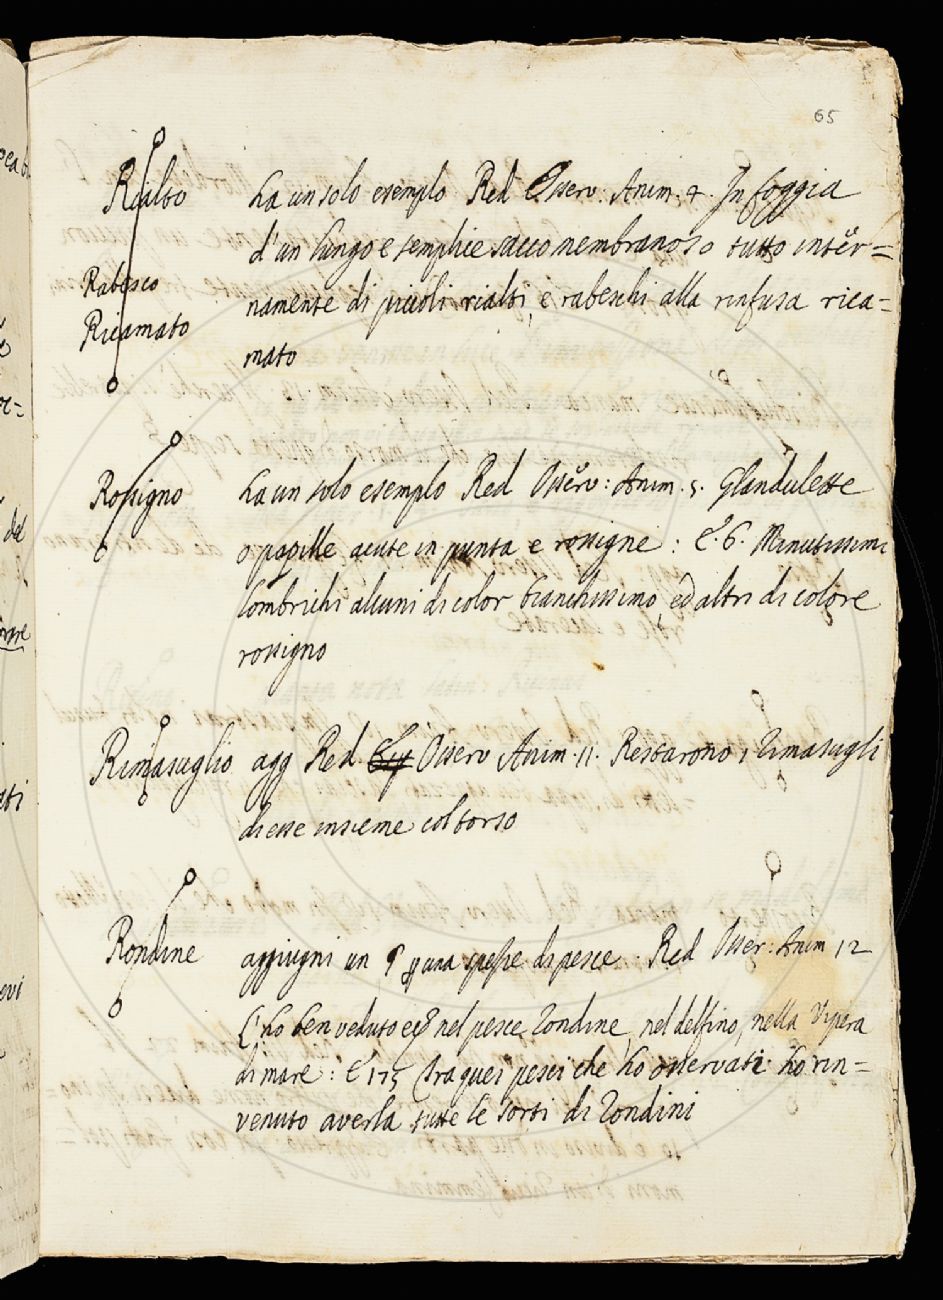 65
Rialto ha un solo esemplo Red Osserv: Anim. 4. In foggia
d'un lungo e semplice sacco membranoso tutto inter=
Rabesco
namente di piccoli rialti, e rabeschi alla rinfusa rica=
Ricamato
mato
Rossigno ha un solo esemplo Red Osserv: Anim. 5. Glandulette
o papille acute in punta e rossigne: E. 6. Minutissimi
lombrichi alcuni di color bianchissimo, ed altri di colore
rossigno
Rimasuglio agg Red Osserv Anim. 11. Restarono i rimasugli
di esse insieme col torso
Rondine aggiugni un § per una spezie di pesce. Red Osser: Anim 12
L'ho ben veduto nel pesce rondine, nel delfino, nella Vipera
di mare: E 175 Tra quei pesci che ho osservati ho rin=
venuto averla tutte le sorti di rondini